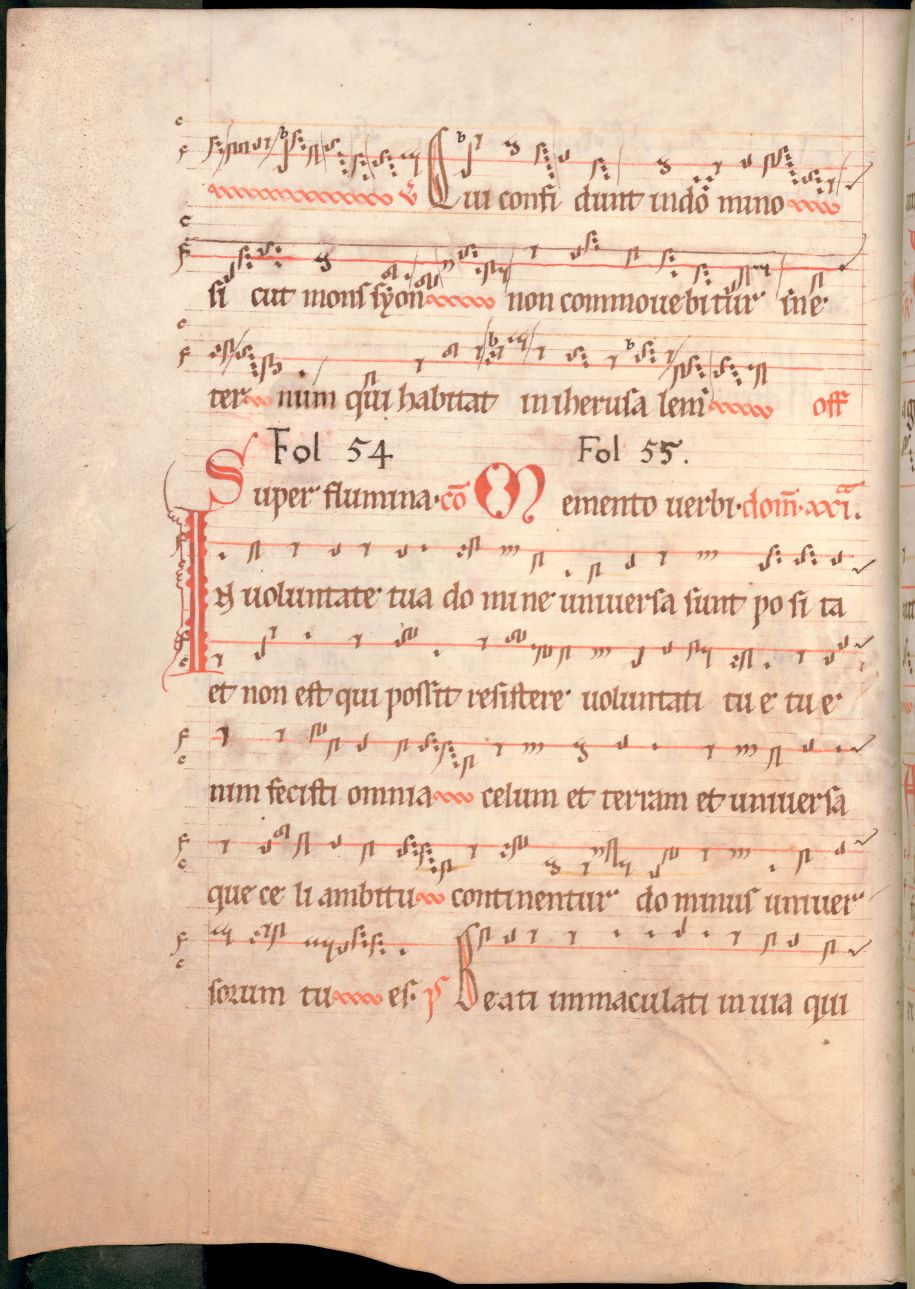 ℣ Qui confi dunt in dño mino
si cut mons syon non commouebitur in e
ter num qui habitat in iherusa lem off
Fol 54 Fol 55.
Super flumina·co Memento uerbi·dom̄·xxi.
In uoluntate tua do mi ne uniuersa sunt po si ta
et non est qui possit resistere uoluntati tu e tu e
nim fecisti omnia celum et terram et uniuersa
que ce li ambitu continentur do minus uniuer
sorum tu es· ps Beati immaculati in uia qui